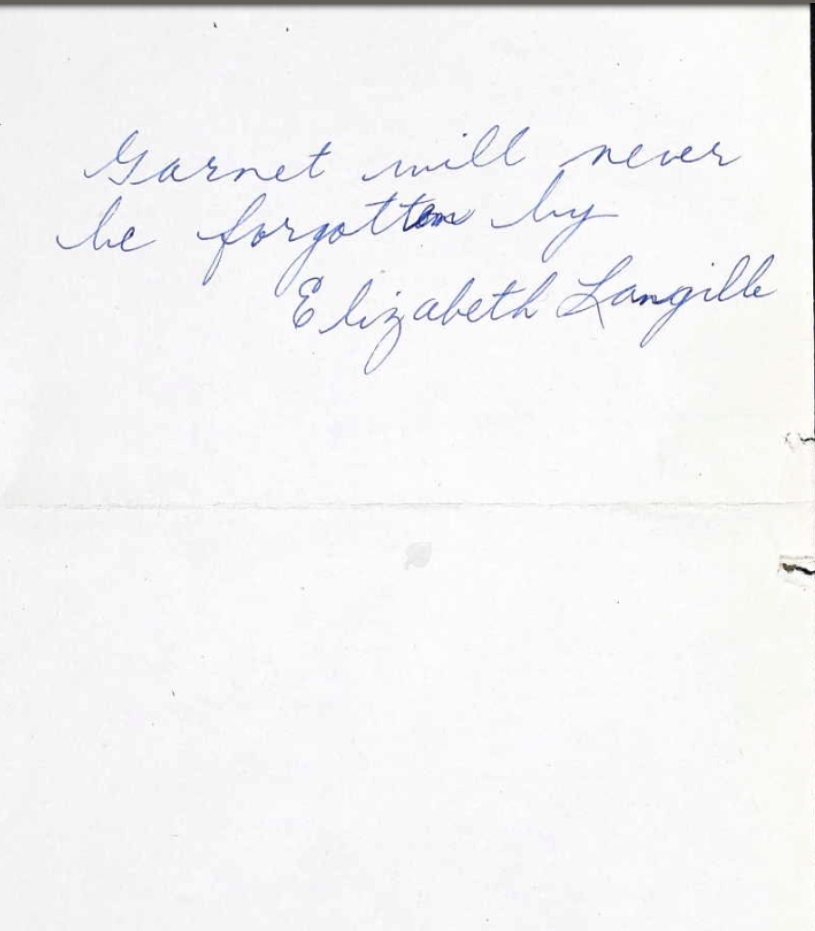 Garnet will never
be forgotten by
Elizabeth Langille